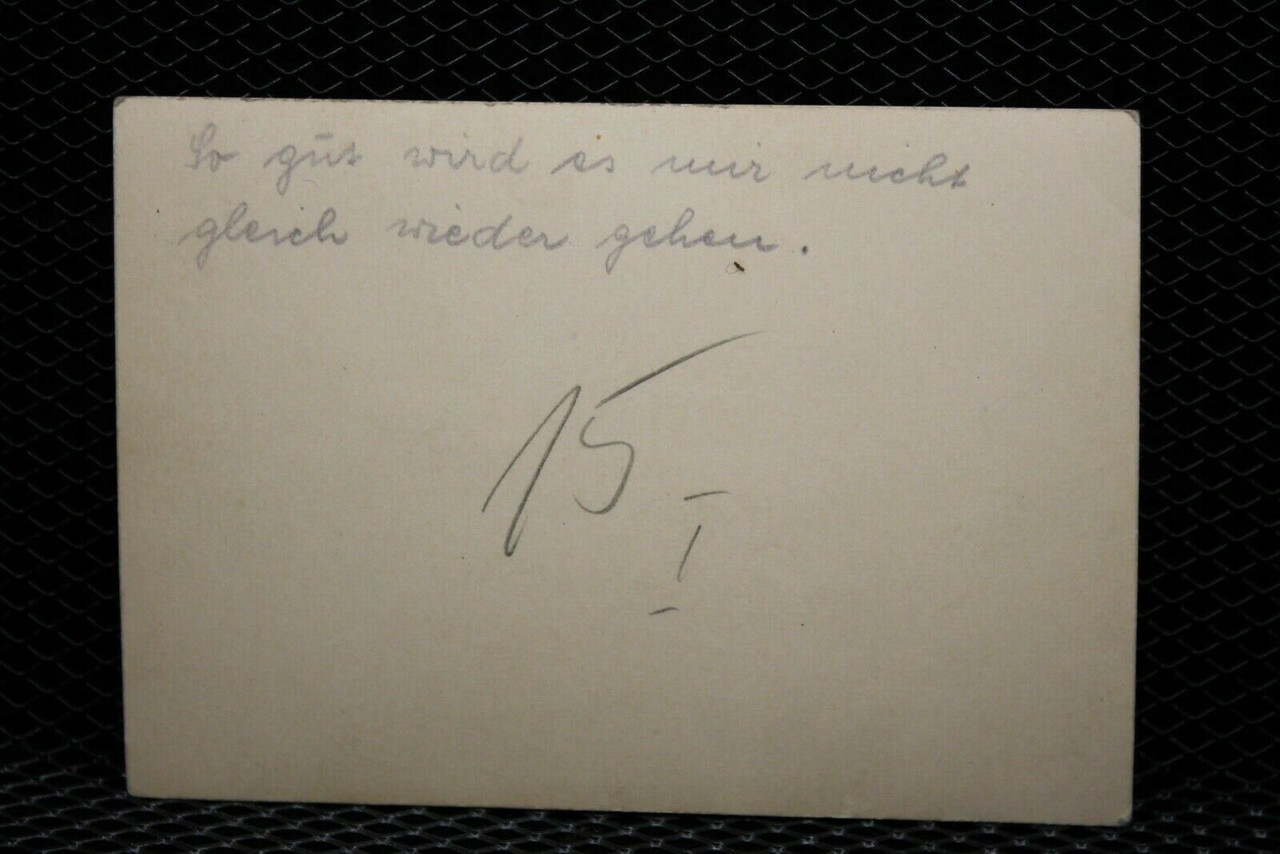 So gūt wird es mir nicht
gleich wieder gehen.
15
I